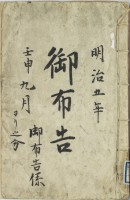 明治五年
御布告
壬申九月
ヨリ之分
御布告係